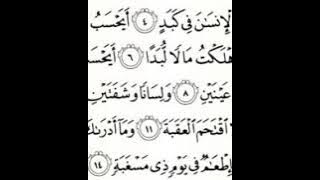 لْإِنسَـٰنَ فِى كَبَدٍ ٤ أَيَحْسَبُ
هْلَكْتُ مَالًا لُّبَدًا ٦ أَيَحْسَ
عَيْنَيْنِ ٨ وَلِسَانًا وَشَفَتَيْنِ
ٱقْتَحَمَ ٱلْعَقَبَةَ ١١ وَمَآ أَدْرَىٰكَ
إِطْعَـٰمٌ فِى يَوْمٍ ذِى مَسْغَبَةٍ ١٤